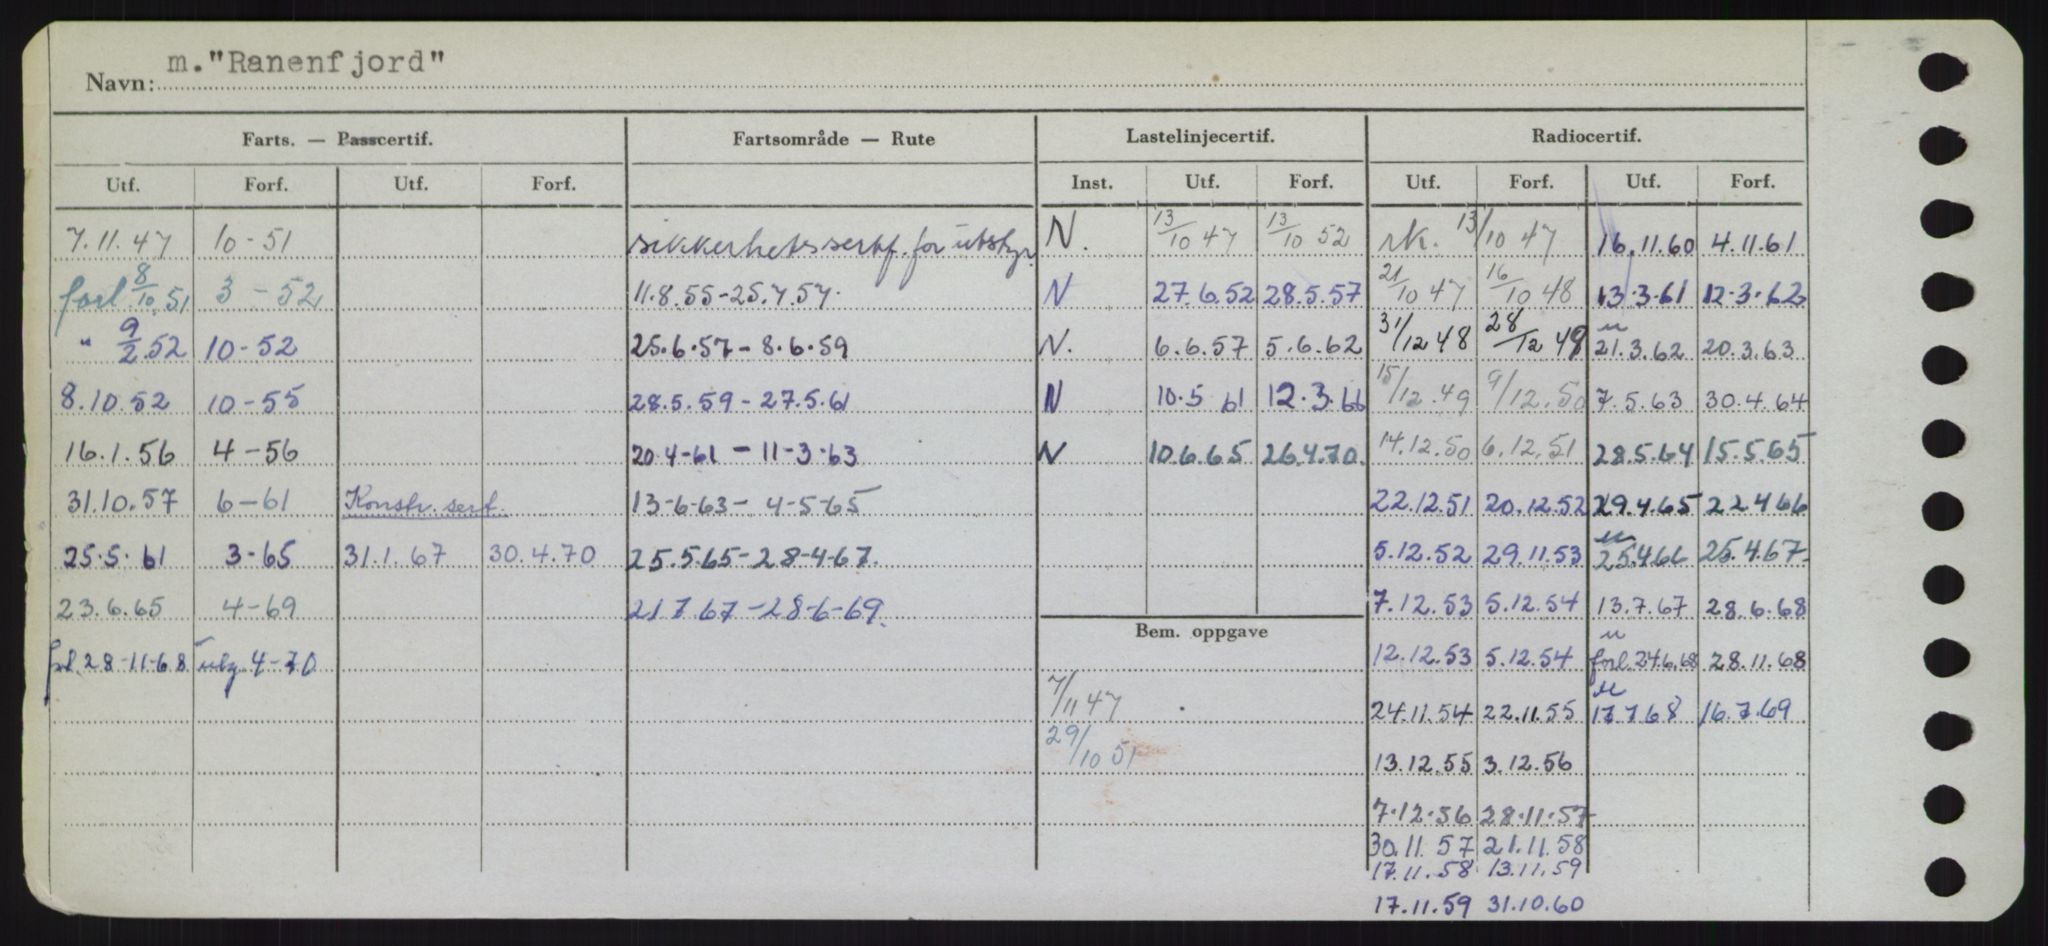 Navn: m."Ranenfjord"
Farts. — Passcertif. Fartsområde — Rute Lastelinjecertif. Radiocertif.
Utf. Forf. Utf. Forf. Inst. Utf. Forf. Utf. Forf. Utf. Forf.
7.11.47 10-51 sikkerhetssertf. for utstyr N. 13/10 47 13/10 52 rk. 13/10 47 16.11.60 4.11.61
forl. 8/10.51 3-52 11.8.55-25.7.57. N 27.6.52 28.5.57 21/10 47 16/10 48 13.3.61 12.3.62
" 9/2.52 10-52 25.6.57-8.6.59 N. 6.6.57 5.6.62 31/12 48 28/12 49 21.3.62 20.3.63
8.10.52 10-55 28.5.59-27.5.61 N 10.5 61 12.3.66 15/12.49 9/12.50 7.5.63 30.4.64
16.1.56 4-56 20.4-61 - 11-3-63 N 10.6.65 26.4.70. 14.12.50 6.12.51 28.5.64 15.5.65
31.10.57 6-61 Konstr. sert. 13-6-63- 4-5-65 22.12.51 20.12.52 29.4.65 22.4 66
25.5.61 3-65 31.1.67 30.4.70 25.5.65-28-4-67. 5.12.52 29.11.53 25.4.66 25.4.67
23.6.65 4-69 21.7.67-28-6-69. 7.12.53 5.12.54 13.7.67 28.6.68
Bem. oppgave
forl. 28-11-68 4-70 12.12.53 5.12.54 forl. 24.6.68 28.11.68
7/11 47 24.11.54 22.11.55 17.7.68 16.7.69
29/10 51 13.12.55 3.12.56
7.12.56 28.11.57
30.11.57 21.11.58
17.11.58 13.11.59
17.11.59 31.10.60